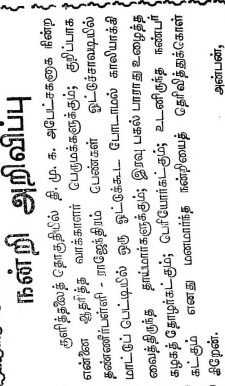 நன்றி அறிவிப்பு
குளித்தலைத் தொகுதியில் தி. மு. க. அபேட்சகராக நின்ற
என்னை ஆதரித்த வாக்காளர் பெருமக்களுக்கும்; குறிப்பாக
தண்ணீர்பள்ளி - ராஜேந்திரம் பெண்கள் ஓட்டுச்சாவடியில்
மாட்டுப் பெட்டியில் ஒரு ஓட்டுக்கூட போடாமல் காலியாக்கி
வைத்திருந்த தாய்மார்களுக்கும்; இரவு பகல் பாராது உழைத்த
கழகத் தோழர்கட்கும்; பெரியோர்கட்கும்; உடனிருந்த நண்பர்
கட்கும் எனது மனமார்ந்த நன்றியைத் தெரிவித்துக்கொள்
கிறேன்.
அன்பன்,